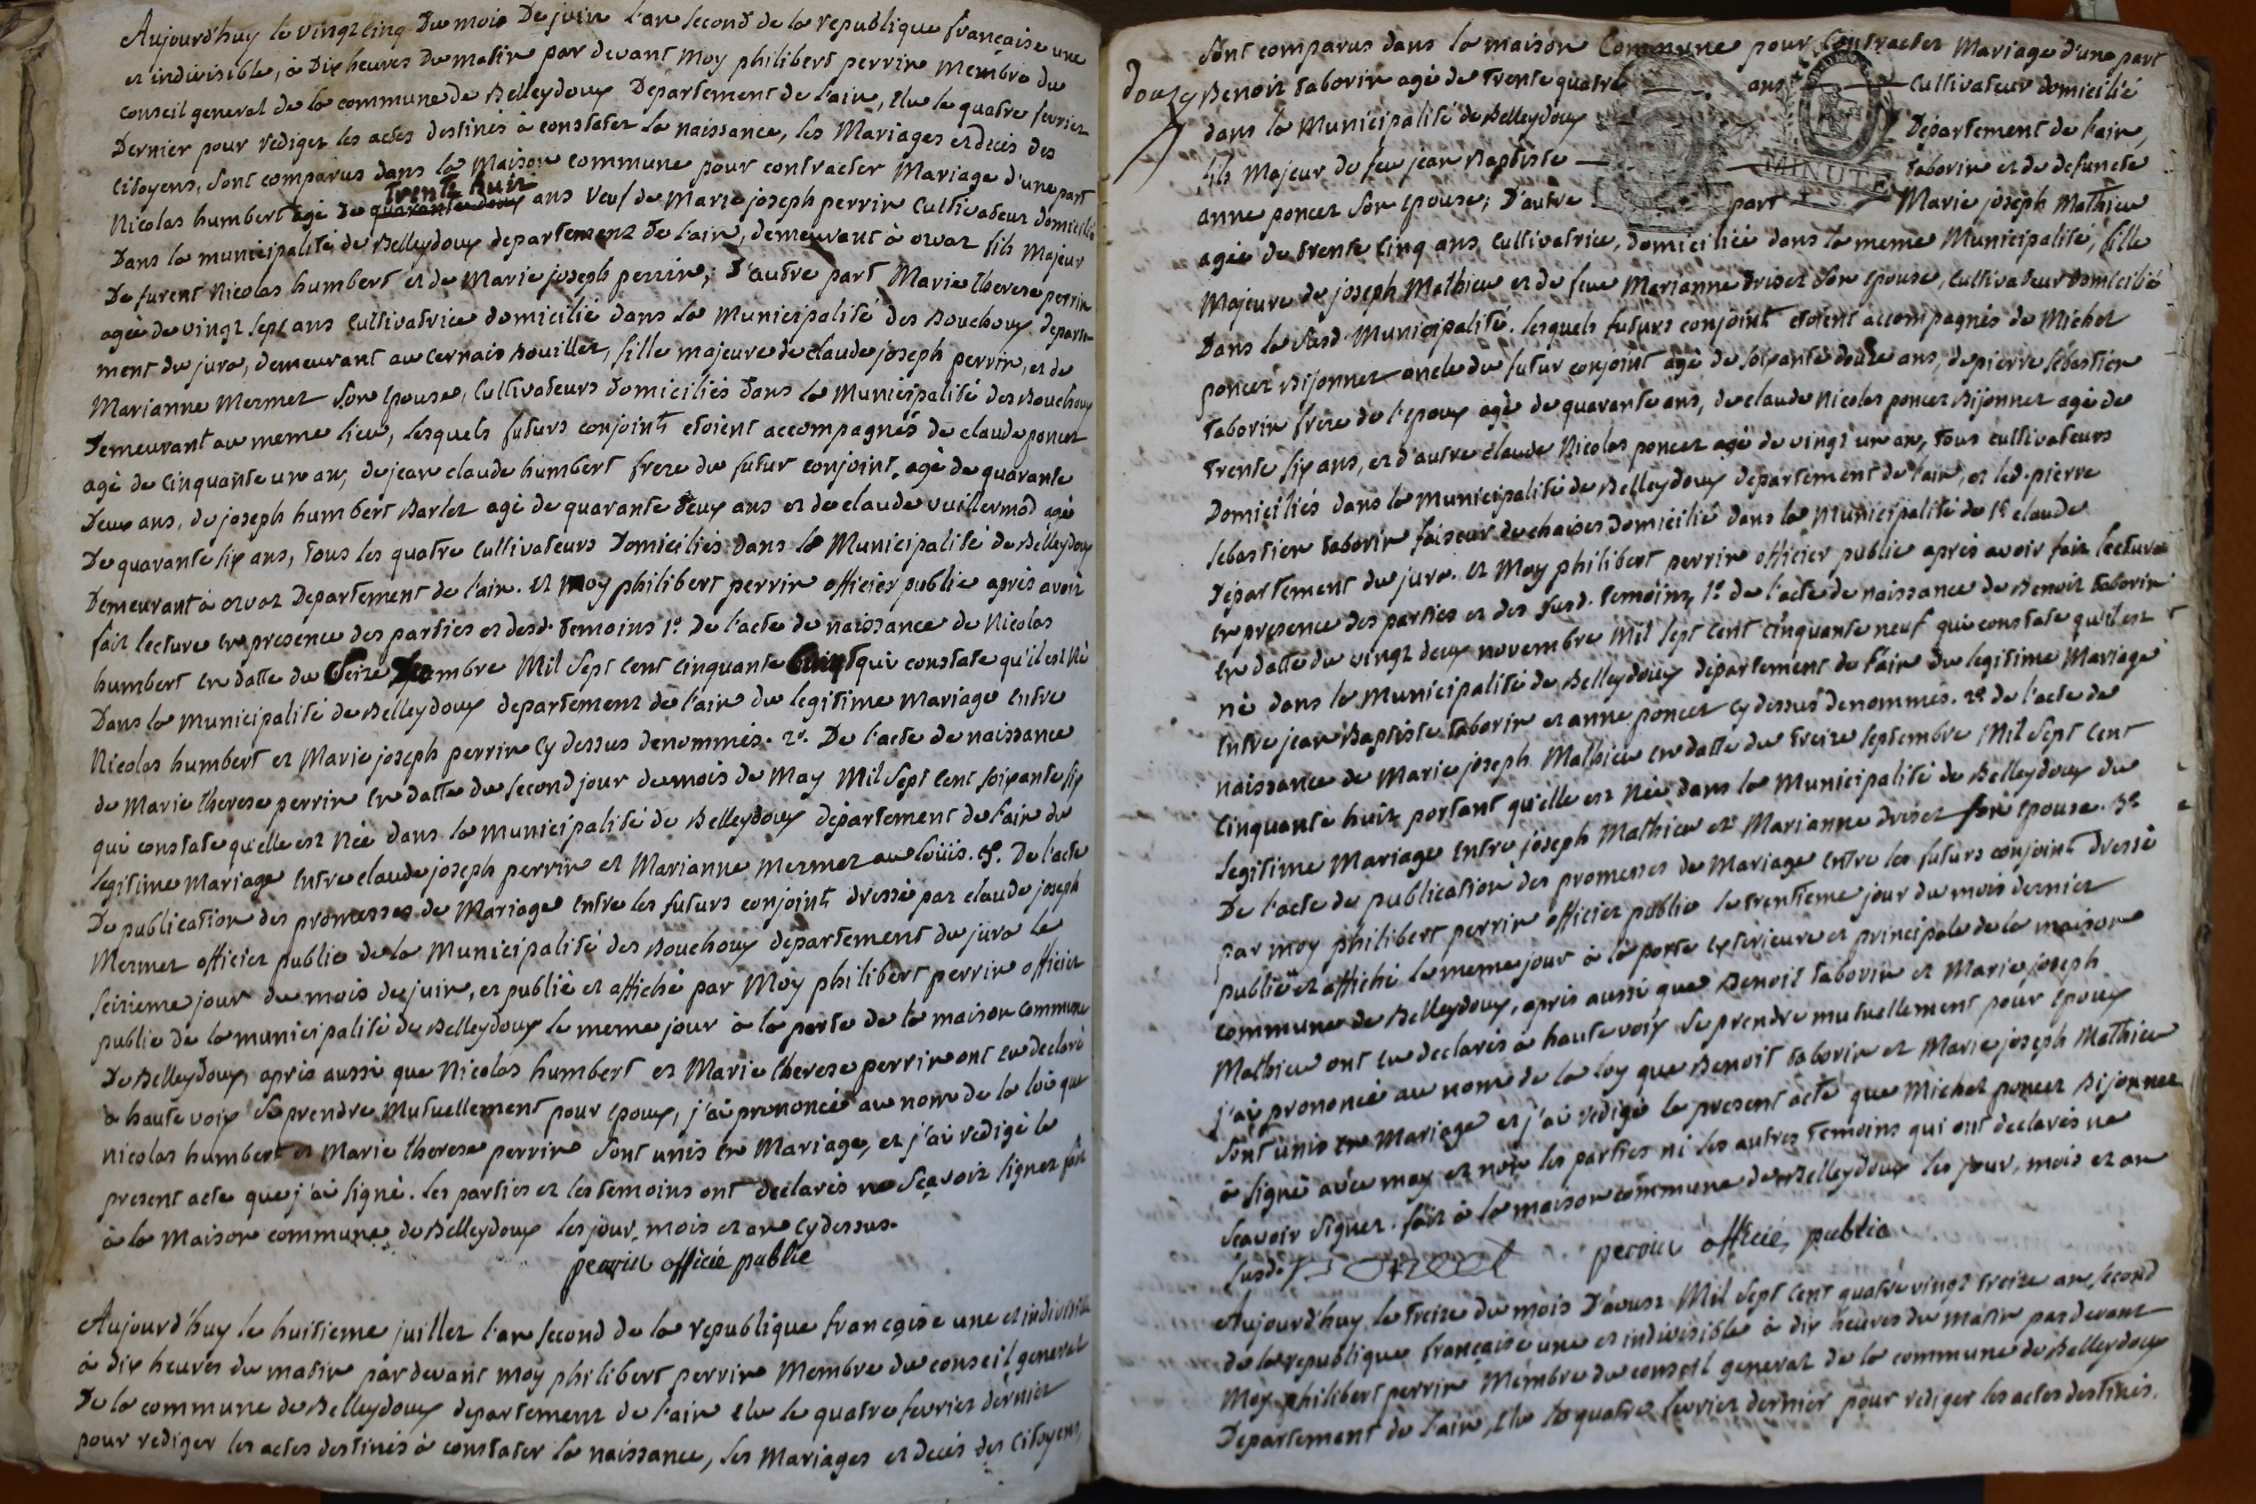 Aujourd'huy le vingt cinq du mois de juin l'an second de la republique française une
et indivisible, à dix heures du matin par devant Moy philibert perrin Membre du
conseil general de la commune de Belleydoux Departement de l'ain, élu le quatre fevrier
Dernier pour rediger les actes destinés à constater la naissance, les Mariages et deces des
citoyens, sont comparus dans la Maison commune pour contracter Mariage d'une part
trente huit
Nicolas humbert agé de quarante deux ans veuf de Marie joseph perrin cultivateur domicilié
Dans la municipalité de Belleydoux departement de l'ain, demeurant à orvaz fils Majeur
De furent Nicolas humbert et de Marie joseph perrin; d'autre part Marie therese perrin
agée de vingt sept ans cultivatrice domicilié dans la Municipalité des Bouchoux departe-
ment du jura, demeurant au cernais Bouillet, fille majeure de claude joseph perrin, et de
Marianne Mermet son epouse, cultivateurs domiciliés dans la Municipalité des Bouchoux
demeurant au meme lieu, lesquels futurs conjoints etoient accompagnés de claude poncet
agé de cinquante un an, de jean claude humbert frere du futur conjoint, agé de quarante
Deux ans, de joseph humbert Barlet agé de quarante deux ans et de claude vuillermod agé
De quarante six ans, tous les quatre cultivateurs Domiciliés dans la Municipalité de Belleydoux
Demeurant à orvaz Departement de l'ain. et moy philibert perrin officier public après avoir
fait lecture en presence des parties et desd. temoins 1º. De l'acte de naissance de Nicolas
humbert en datte du Mil sept cent cinquante qui constate qu'il est Né
Dans la municipalité de Belleydoux departement de l'ain du legitime mariage entre
Nicolas humbert et Marie joseph perrin cy dessus denommés. 2º. De l'acte de naissance
de Marie therese perrin en datte du second jour du mois de May Mil sept cent soixante six
qui constate qu'elle est Née dans la municipalité de Belleydoux département de l'ain du
legitime mariage entre claude joseph perrin et Marianne Mermet De l'acte
De publication des promesses de Mariage entre les futurs conjoints dressé par claude joseph
Mermet officier public de la Municipalité des Bouchoux departement du jura le
seizieme jour du mois de juin, et publié et affiché par Moy philibert perrin officier
public de la municipalité de Belleydoux le meme jour à la porte de la maison commune
De Belleydoux, après aussi que Nicolas humbert et Marie therese perrin ont eu declaré
à haute voix se prendre Mutuellement pour epoux, j'ai prononcé au nom de la loi que
nicolas humbert et Marie therese perrin sont unis en Mariage, et j'ai redigé le
present acte que j'ai signé. Les parties et les temoins ont declarés ne sçavoir signer fait
à la Maison commune de Belleydoux les jour, mois et an cy dessus.
perrin officié public
Aujourd'huy le huitieme juillet l'an second de la republique françoise une et indivisible
à dix heures du matin par devant moy philibert perrin Membre du conseil general
De la commune de Belleydoux departement de l'ain élu le quatre fevrier dernier
pour rediger les actes destinés à constater la naissance, les Mariages et decès des citoyens,
sont comparus dans la maison Commune pour contracter Mariage d'une part
douze
Benoit taborin agé de trente quatre ans cultivateur domicilié
dans la Municipalité de Belleydoux Département de l'ain,
fils Majeur de feu jean Baptiste taborin et de defuncte
anne poncet son epouse; d'autre part Marie joseph Mathieu
MINUTE
agée de trente cinq ans, cultivatrice, domiciliée dans la meme Municipalité, fille
Majeure de joseph Mathieu et de feue Marianne driset son epouse, cultivateur domicilié
Dans la susd. Municipalité. lesquels futurs conjoints etoient accompagnés de Michel
poncet Bijonnet oncle du futur conjoint agé de soixante douze ans, de pierre sebastien
taborin frere de l'epoux agé de quarante ans, de claude Nicolas poncet Bijonnet agé de
trente six ans, et d'autre claude Nicolas poncet agé de vingt un an, tous cultivateurs
Domiciliés dans la municipalité de Belleydoux departement de l'ain, et led. pierre
sebastien taborin faiseur de chaises domicilié dans la municipalité de St claude
Département du jura. et Moy philibert perrin officier public après avoir fait lecture
en presence des parties et des susd. temoins, 1º. de l'acte de naissance de Benoit taborin
en datte du vingt deux novembre Mil sept cent cinquante neuf qui constate qu'il est
né dans la municipalité de Belleydoux département de l'ain du legitime Mariage
entre jean Baptiste taborin et anne poncet cy dessus denommés. 2º. de l'acte de
naissance de Marie joseph Mathieu en datte du treize septembre Mil sept cent
cinquante huit portant qu'elle est Née dans la municipalité de Belleydoux du
legitime Mariage entre joseph Mathieu et Marianne driset son epouse. 3º.
De l'acte de publication des promesses de Mariage entre les futurs conjoints dressé
par moy philibert perrin officier public le trentieme jour du mois dernier
publié et affiché le meme jour à la porte exterieure et principale de la maison
commune de Belleydoux, après aussi que Benoit taborin et Marie joseph
Mathieu ont eu declarés à haute voix se prendre mutuellement pour epoux
j'ai prononcé au nom de la loy que Benoit taborin et Marie joseph Mathieu
sont unis en Mariage et j'ai redigé le present acte que Michel poncet Bijonnet
à signé avec moy et non les parties ni les autres temoins qui ont declarés ne
sçavoir signer. fait à la maison commune de Belleydoux les jour, mois et an
susd. perrin officié, public
Aujourd'huy le treize du mois d'aoust Mil sept cent quatre vingt treize an second
de la republique française une et indivisible à dix heures du matin par devant
Moy philibert perrin Membre du conseil general de la commune de Belleydoux
Departement de l'ain, élu le quatre fevrier dernier pour rediger les actes destinés.